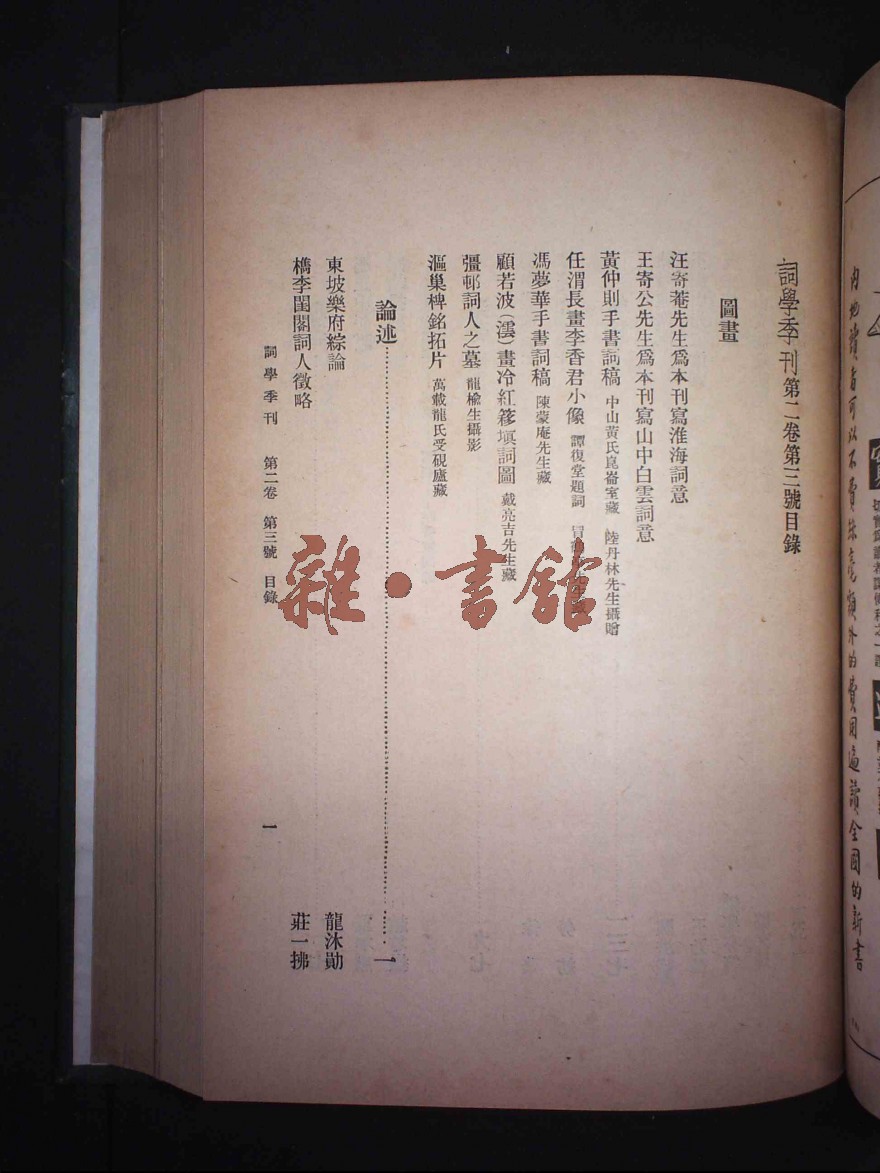 詞學季刊第二卷第三號目錄
圖畫
汪寄菴先生爲本刊寫淮海詞意
王寄公先生爲本刊寫山中白雲詞意
黃仲則手書詞稿 中山黃氏崑崙室藏 陸丹林先生攝贈
任渭長畫李香君小像 譚復堂題詞 冒
馮夢華手書詞稿 陳蒙庵先生藏
顧若波(澐)畫冷紅簃塡詞圖 戴亮吉先生藏
彊邨詞人之墓 龍楡生攝影
漚巢碑銘拓片 萬載龍氏受硯廬藏
論述 一
東坡樂府綜論 龍沐勛
檇李閨閣詞人徵略 莊一拂
詞學季刊 第二卷 第三號 目錄 一
雜·書館
內地讀者可以不費 額外的費用遍讀全國的新書